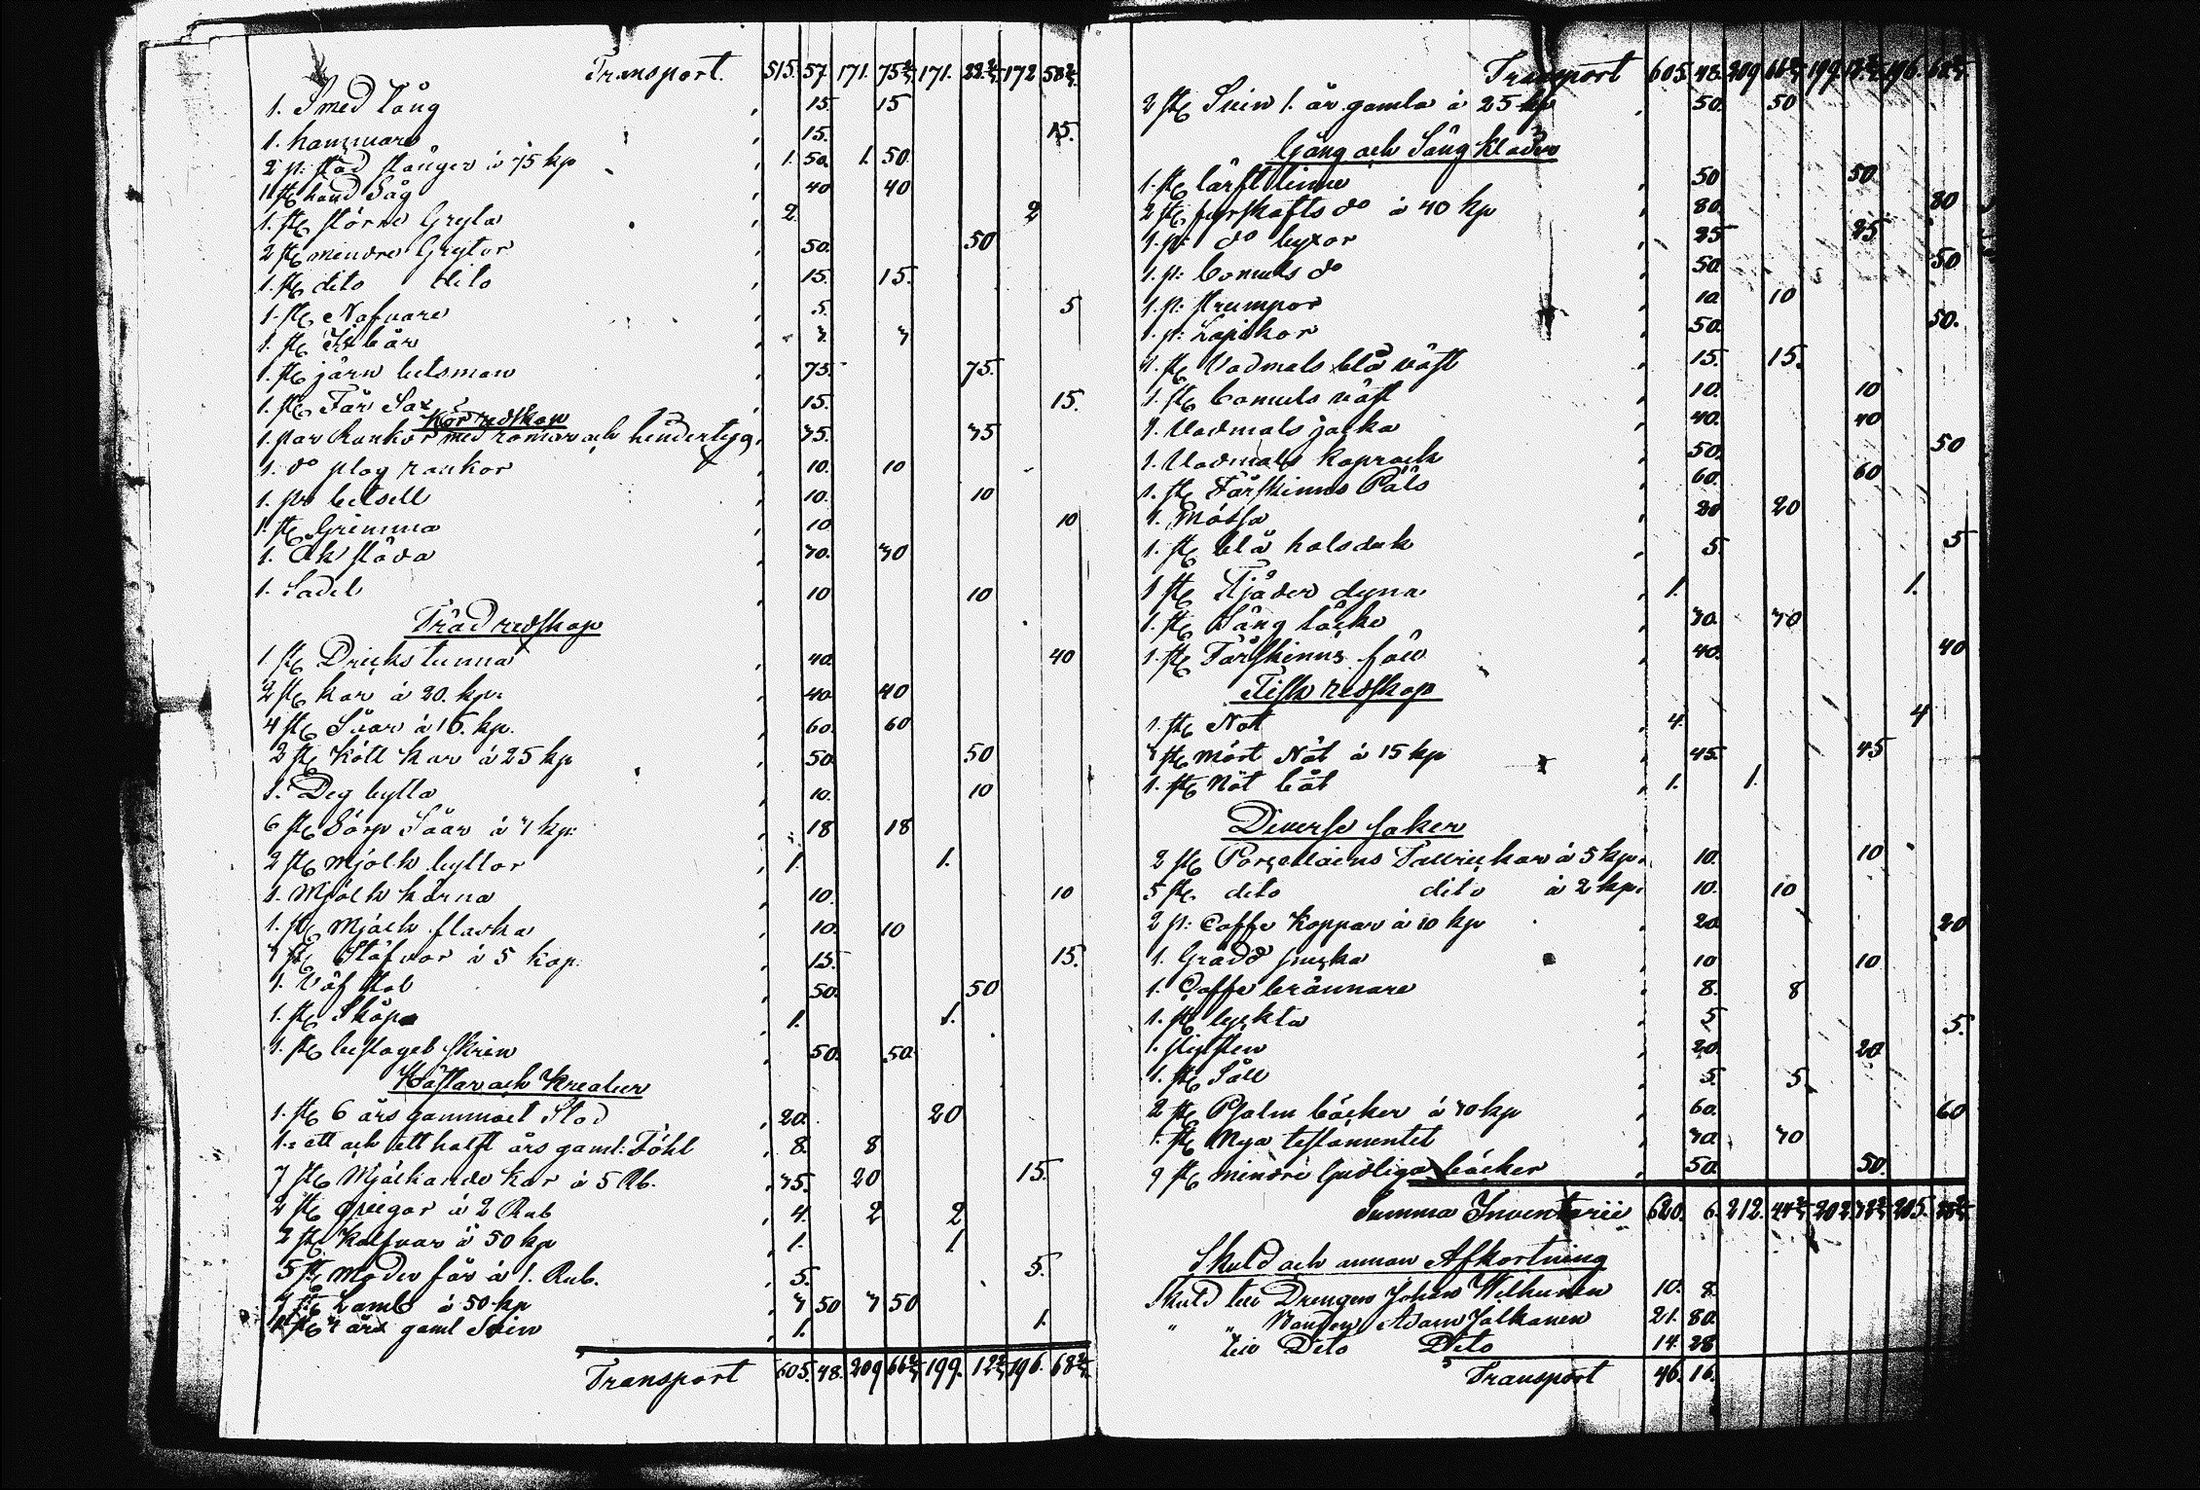 Transport. 515. 57. 171. 75 2/3 171. 22 2/3 172 58 2/3
1. Smed tång , 15. 15
1. hammare , 15. 15.
2 p: stöd stänger à 75 kp , 1. 50. 1. 50.
1 st hand Såg , 40 40
1. st större Gryta , 2. 2
2 st mindre Grytor , 50. 50
1. st dito dito , 15. 15.
1. st Nafvare , 5. 5
1. st Is bår , 3. 3
1. st järn betsman , 75. 75.
1. st Får Sax , 15. 15.
Kör redskap
1. par Rankor med romor och hindertyg , 35. 35
1. do plog rankor , 10. 10
1. p: betsell , 10. 10
1. st Grimma , 10 10
1. Åk släda , 30. 30
1. Sadel , 10 10
Träd redskap
1 st Dricks tunna , 40. 40
2 st kar à 20. kp: , 40. 40
4 st Såar à 15. kp. , 60. 60
2 st Kött kar à 25 kp , 50. 50
1. Deg bytta , 10. 10
6 st Sörp Såar à 3 kp: , 18 18
2 st Mjölk byttor , 1. 1.
1. Mjölk kärna , 10. 10
1. st Mjölk flaska , 10. 10
3 st Stäfvor à 5 kop. , 15. 15.
1. Väf stol , 50. 50
1. st Skåp , 1. 1.
1. st beslaget skrin , 50. 50.
Hästar och Kreatur
1. st 6 års gammalt Stod , 20. 20
1. ett och ett halft års gaml: Föhl , 8. 8
7 st Mjölkande kor à 5 Rb. , 35. 20 15.
2 st qvigor à 2 Rub , 4. 2 2
2 st Kalfvar à 50 kp , 1. 1
5 st Moder får à 1. Rub. , 5. 5.
7 st Lamb à 50 kp , 3 50 3 50
1 st års gaml Svin , 1. 1.
Transport 605. 48. 209 66 2/3 199. 12 2/3 196. 68 2/3
Transport 605. 48. 209 66 2/3 199. 12 2/3 196. 68 2/3
2 st Svin 1. år gamla à 25 kp , 50. 50
Gång och Säng Kläder
1. st lärft linne , 50 50
2 st fyrskafts do à 40 kp , 80. 80
1. p: do byxor , 25 25
1. p: bomuls do , 50. 50
1. p: strumpor , 10 10
1. p: Lapskor , 50. 50.
1. st Vadmals blå väst , 15. 15.
1. st bomuls väst , 10. 10
1. Vadmals jacka , 40. 40
1. Vadmals kaprock , 50. 50
1. st Fårskinns Päls , 60. 60
1. Mössa , 20 20
1. st blå halsduk , 5 5
1 st Fjäder dyna , 1. 1.
1. st Säng täcke , 30. 30
1. st Fårskinns fäll , 40. 40
Fisk redskap
1. st Not , 4. 4
3 st Mört Nät à 15 kp , 45. 45
1. st Nöt båt , 1. 1.
Diverse saker
2 st Porcellains Tallrickar à 5 kp. , 10. 10
5 st dito dito à 2 kp. , 10. 10
2 p: Caffe Koppar à 10 kp , 20. 20
1. Grädd snipka , 10 10
1. Caffe brännare , 8. 8
1. st lyckta , 5 5.
1. slipsten , 20. 20
1. st Såll , 5. 5
2 st Psalm böcker à 30 kp , 60. 60
1. st Nya testamentet , 30. 30
9 st mindre Gudliga böcker , 50. 50.
Summa Inventarii 620. 6. 212. 44 2/3 202. 205.
Skuld och annan Afkortning
Skuld till Drengen Johan Wilhunen 10. 8.
" " Bonden Adam Jalkanen 21. 80.
till Dito Dito 14. 28
Transport 46. 16.